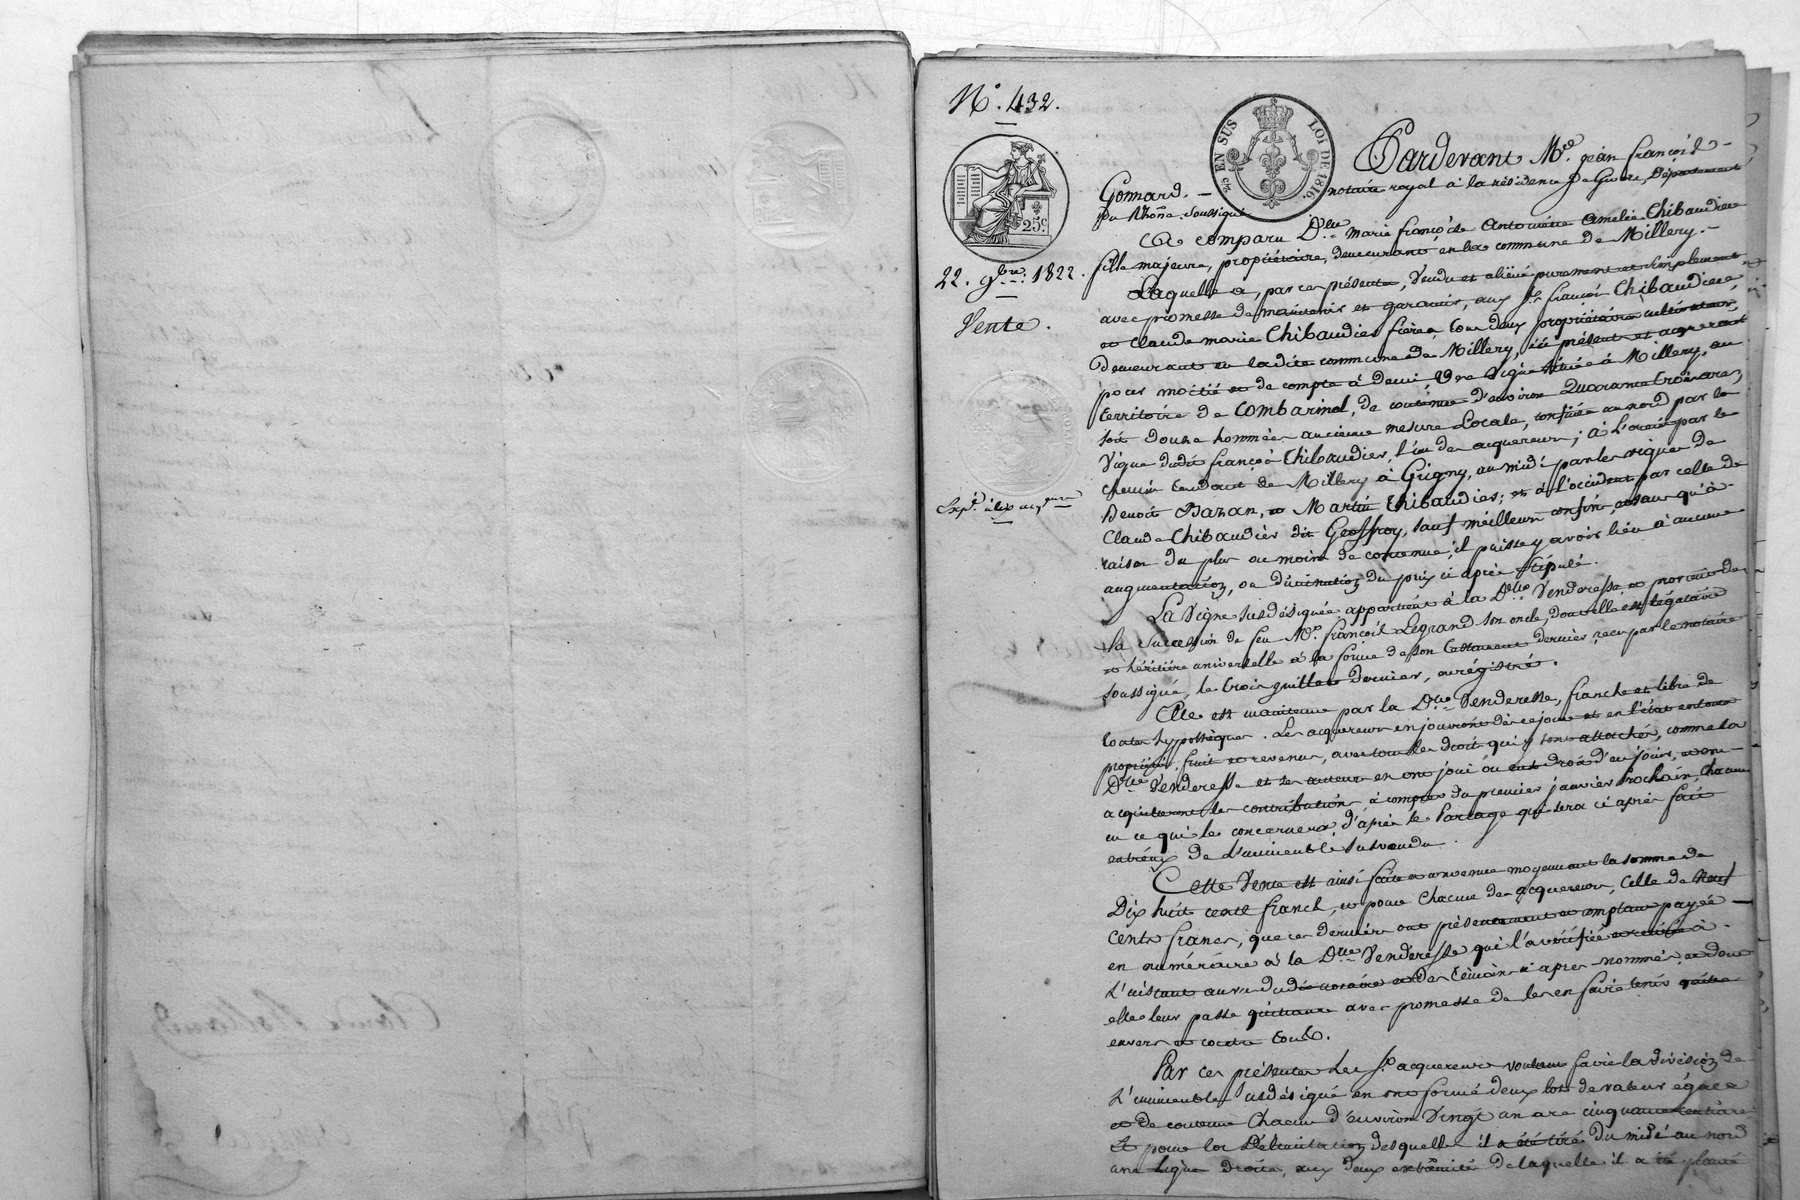 N.º 432.
EN SUS
LOI DE 1816.
25 c.
22. 9bre 1822.
Vente.
Pardevant Me. jean françois
Gonnard. notaire royal à la résidence de Givors, Département
du Rhône soussigné
A comparu Dlle. Marie françoise Antoinette Amelie Chibaudier
fille majeure, propriétaire, demeurant en la commune de Millery.
Laquelle a, par ces présentes, vendu et aliéné purement et simplement
avec promesse de maintenir et garantir, aux Srs. françois Chibaudier
et Claude marie Chibaudier frères, tous deux propriétaires cultivateurs,
demeurant en ladite commune de Millery, ici présent et acquereurs
pour moitié et de compte à demi, Une Vigne située à Millery, au
territoire de Combarinel, de contenue d'environ Quarante trois ares,
soit douze hommées ancienne mesure locale, confinée au nord par la
Vigne dudit françois Chibaudier, l'un des acquereurs; à l'orient par le
chemin tendant de Millery à Grigny, au midi par les vignes de
Benoit Bazan, et Martin Chibaudier; et à l'occident par celle de
Claude Chibaudier dit Geoffroy, sauf meilleurs confins, et sans qu'à
raison du plus ou moins de contenue, il puisse y avoir lieu à aucune
augmentation, ou diminution du prix ci après stipulé.
La Vigne susdésignée appartient à la Dlle. Venderesse et provient de
la succession de feu Mr. françois Legrand son oncle, dont elle est légataire
et héritière universelle à la forme de son testament dernier, reçu par le notaire
soussigné, le trois juillet dernier, enrégistré.
Elle est maintenue par la Dlle. Venderesse, franche et libre de
toutes hypothèques. Les acquereurs en jouiront dès ce jour et en l'état en toute
propriété, fruits et revenus, avec tous les droits qui y sont attachés, comme la
Dlle. Venderesse et ses auteurs en ont joui ou eu droit d'en jouir, et en
acquitteront les contributions à compter du premier janvier Prochain, chacun
en ce qui le concernera, d'après le Partage qui sera ci après fait
entr'eux de l'immeuble susvendu.
Cette Vente est ainsi faite et convenue moyennant la somme de
Dix huit cents francs, et pour Chacun des acquereurs, celle de Neuf
Cents francs, que ces derniers ont présentement et comptant payée
en numéraire à la Dlle. Venderesse qui l'a vérifiée et retirée à
l'instant au vu dudit notaire et des témoins ci après nommés, et dont
elle leur passe quittance avec promesse de les en faire tenir quitte
envers et contre tous.
Par ces présentes les Srs. acquereurs voulant faire la division de
l'immeuble susdésigné en ont formé deux lots de valeur égale
et de contenue Chacun d'environ Vingt un are cinquante centiares
Et pour la Délimitation desquelles il a été tiré du midi au nord
une ligne droite, aux deux extrémités de laquelle il a été planté